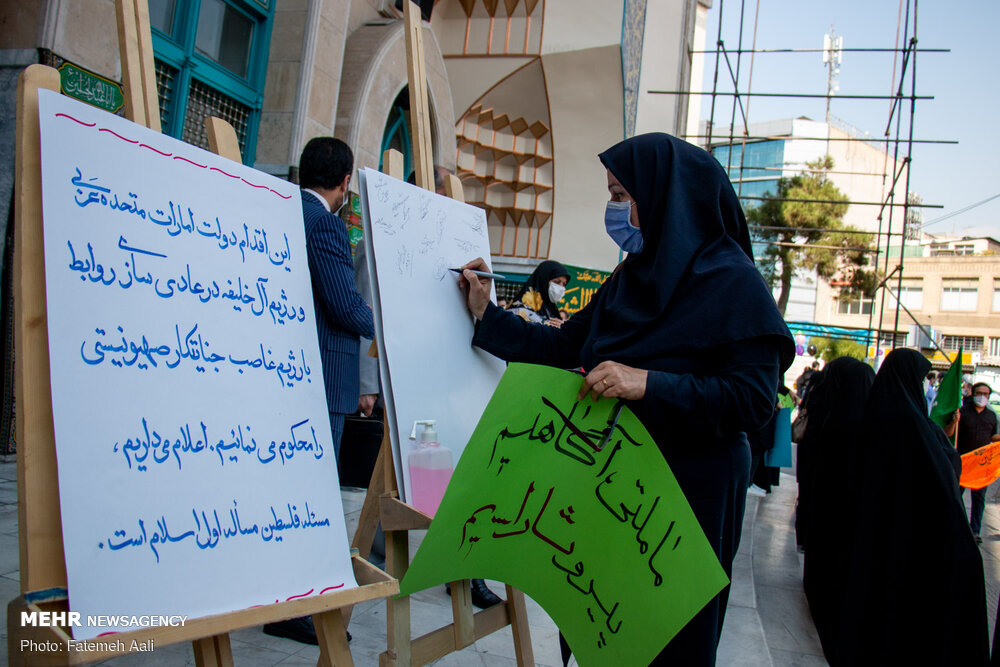 این اقدام دولت امارات متحده عربی
و رژیم آل خلیفه در عادی سازی روابط
با رژیم غاصب جنایتکار صهیونیستی
را محکوم می نمائیم. اعلام می داریم،
مسئله فلسطین مسأله اول اسلام است.
ما ملتی آگاهیم
پیرو ثاراسیم
MEHR NEWSAGENCY
Photo: Fatemeh Aali